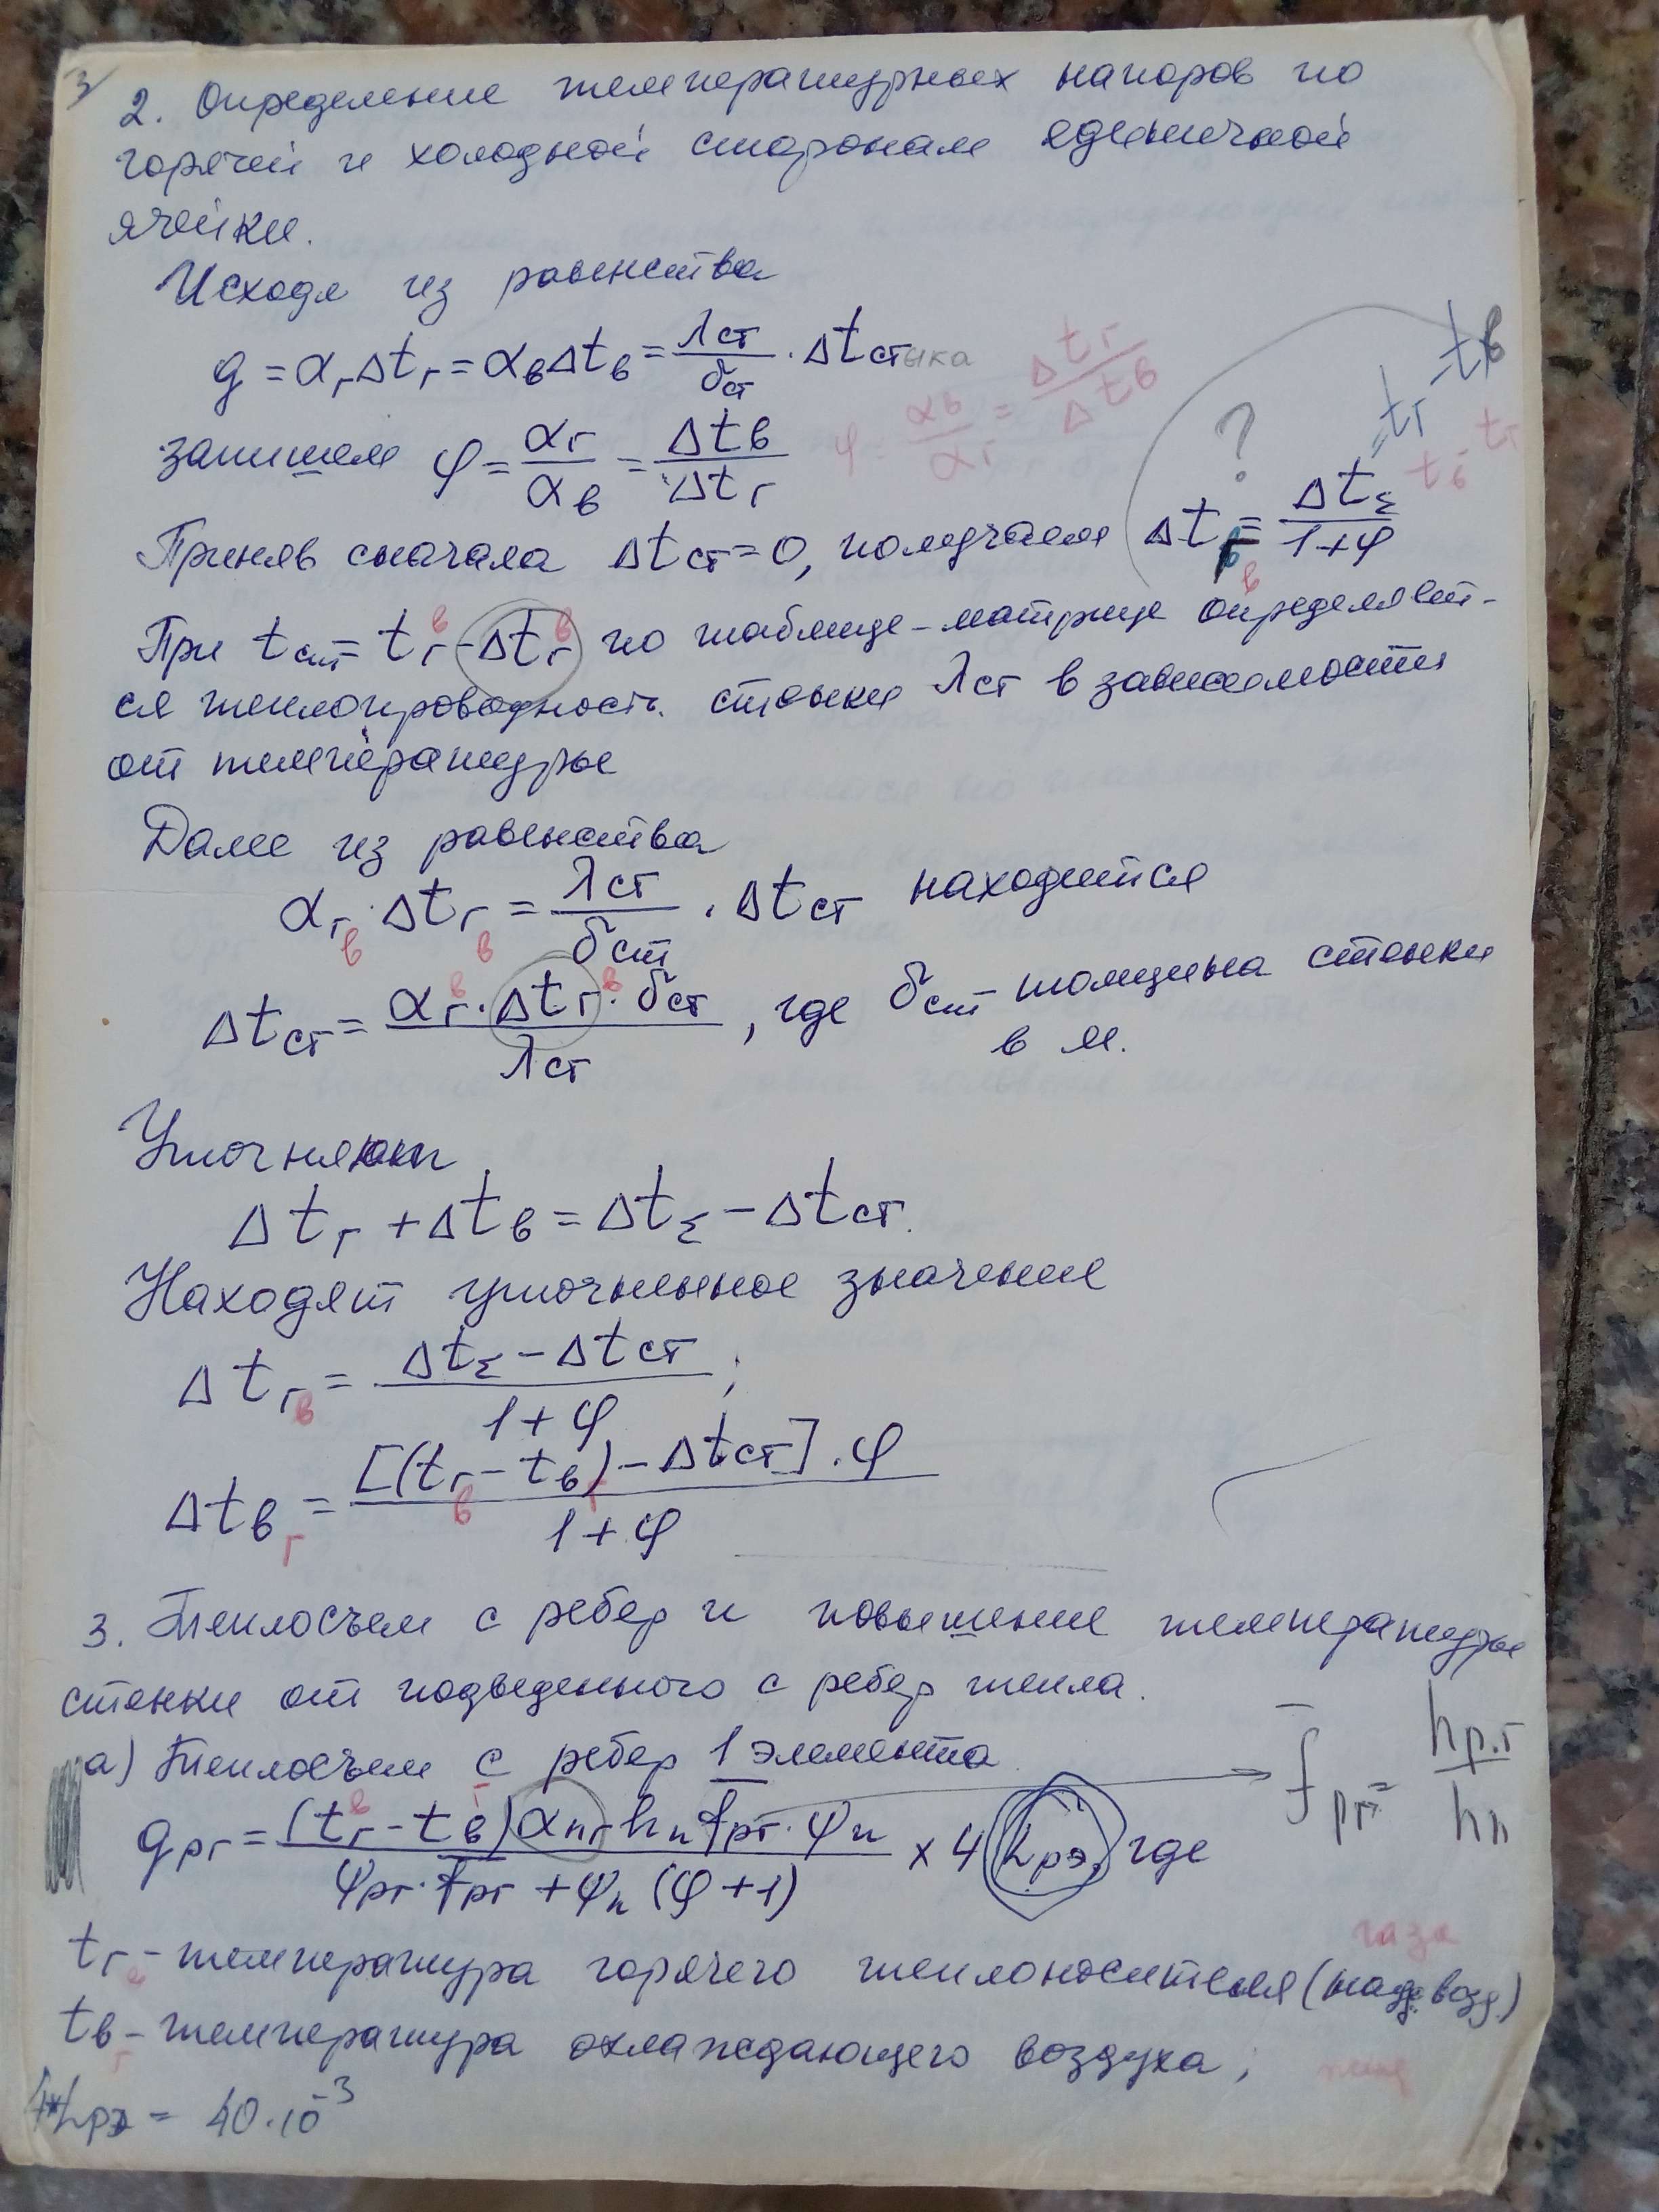 3
2. Определение температурных напоров по
горячей и холодной сторонам единичной
ячейки.
Исходя из равенства
q = αг Δtг = αв Δtв = λст/δст · Δtстыка
запишем φ = αг/αв = Δtв/Δtг
φ = αв/αг = Δtг/Δtв
= tг - tв
tв - tг
?
Приняв сначала Δtст = 0, получаем Δtв = ΔtΣ/(1+φ)
в
При tст = tг - Δtг по таблице-матрице определяет-
в в
ся теплопроводность стенки λст в зависимости
от температуры
Далее из равенства
αг · Δtг = λст/δст · Δtст находится
в в
Δtст = αг · Δtг · δст / λст, где δст - толщина стенки
в в
в м.
Уточняют
Δtг + Δtв = ΔtΣ - Δtст.
Находят уточненное значение
Δtг = (ΔtΣ - Δtст)/(1+φ);
в
Δtв = [(tг - tв) - Δtст] · φ / (1+φ)
г в г
3. Теплосъем с ребер и повышение температуры
стенки от подведенного с ребер тепла.
а) Теплосъем с ребер 1 элемента
f̄рг = hр.г/hп
qрг = (tг - tв) αпг hп f̄рг · φп / (φрг · f̄рг + φп (φ+1)) × 4 hрэ, где
в г
tг - температура горячего теплоносителя (надд. возд.)
в газа
tв - температура охлаждающего воздуха;
г
4*hрэ = 40·10⁻³